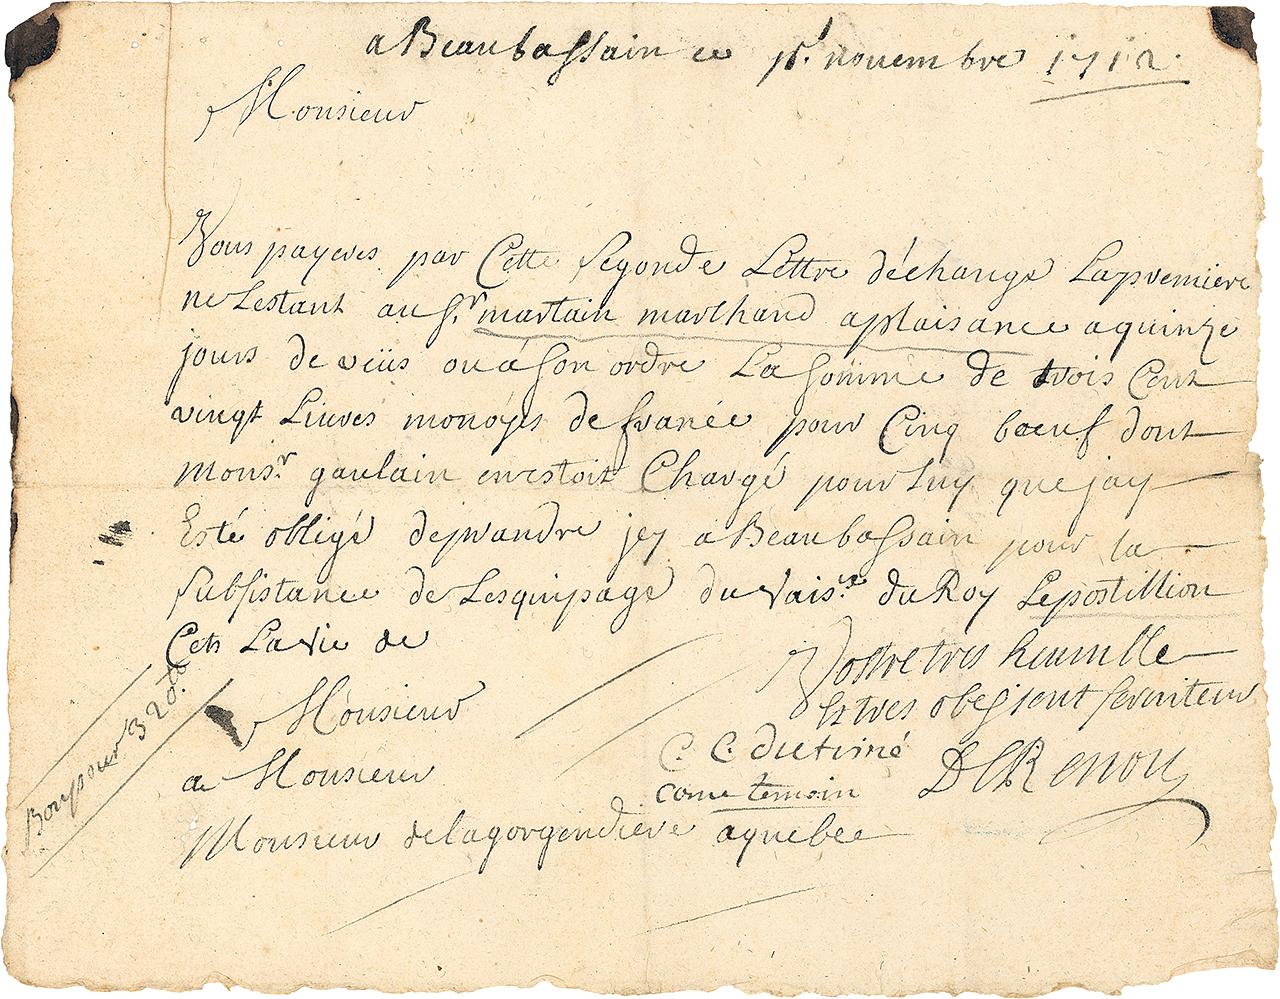 a Beaubassain ce 15.t novembre 1712.
Monsieur
Vous payeres par Cette segonde Lettre déchange La premiere
ne Lestant au Sr. martain marchand a plaisance a quinze
jours de veüs ou a son ordre La somme de trois Cent
vingt Liuvres monoyes de france pour Cinq bœuf dont
Monsr. gaulain enestoit Chargé pour Luy que jay
Esté obligé de prandre jcy a Beaubassain pour la
subsistance de Lesquipage du Vaiss. du Roy Le postillion
Cets La Vie de
Monsieur
Vostre tres heumble
Et tres obeysent serviteur
DeRenou
C. C. dutiné
come temoin
a Monsieur
Monsieur de la gorgendiere a quebec
Bon pour 320